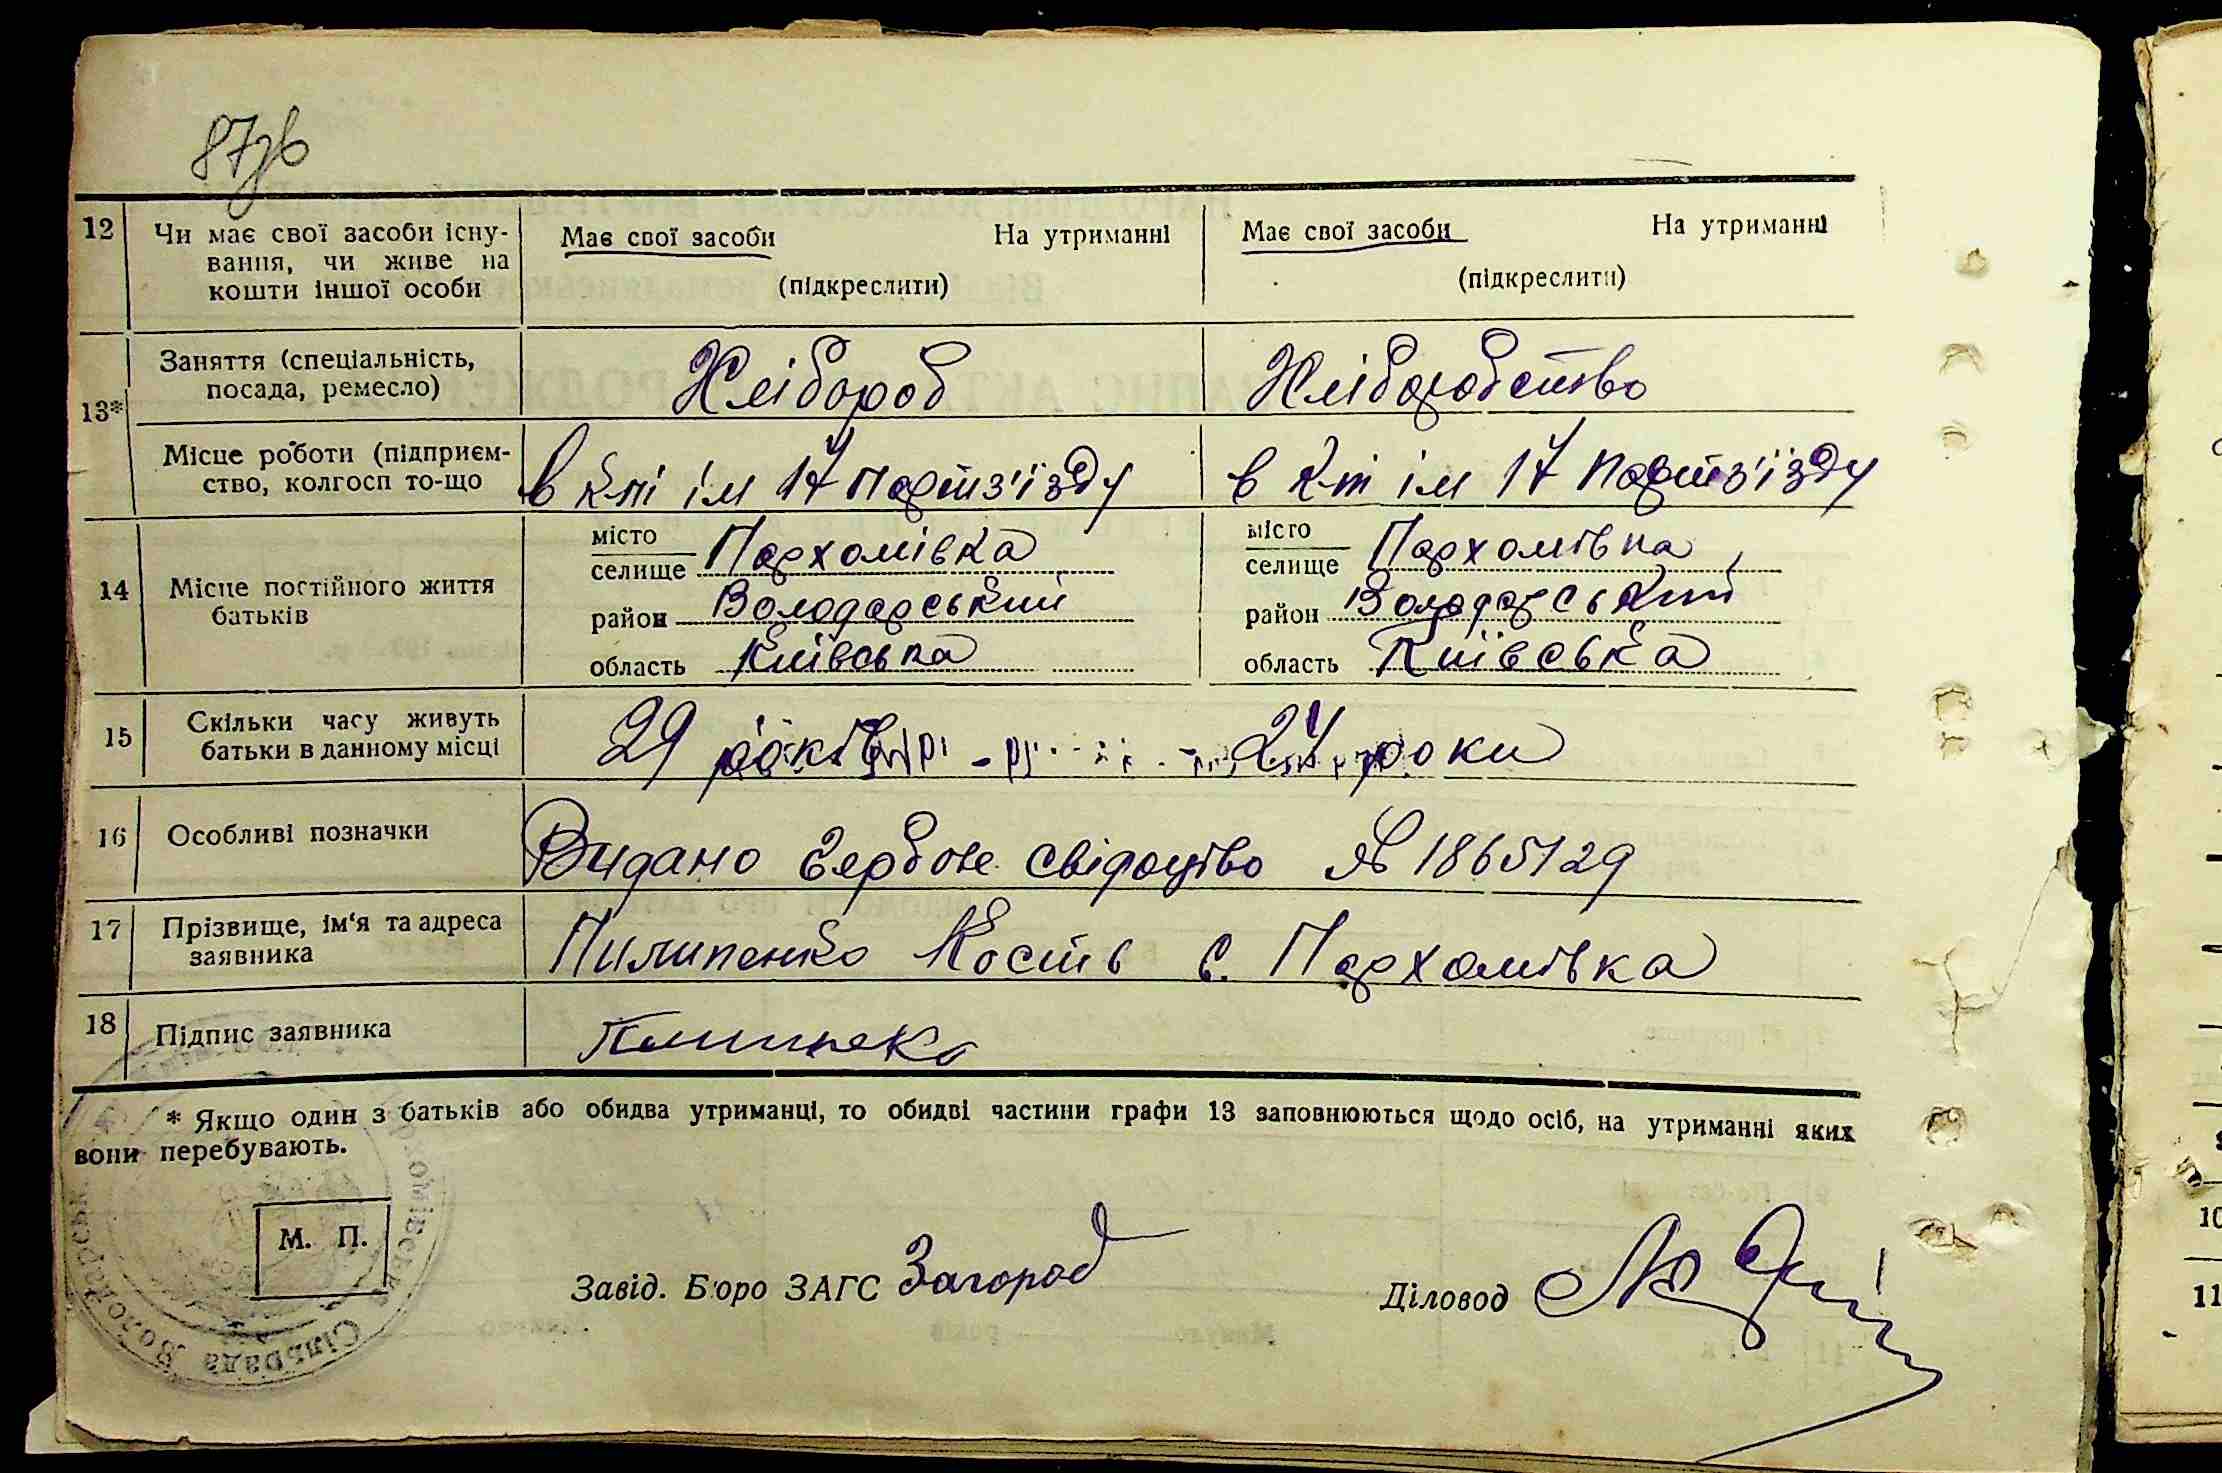 87зв
12 Чи має свої засоби існу-
вання, чи живе на
кошти іншої особи
Має свої засоби На утриманні
(підкреслити)
Має свої засоби На утриманні
(підкреслити)
13*
Заняття (спеціальність,
посада, ремесло)
Хлібороб
Хліборобство
Місце роботи (підприєм-
ство, колгосп то-що
в к-пі ім 17 Партз'їзду
в к-пі ім 17 Партз'їзду
14 Місце постійного життя
батьків
місто
селище Пархомівка
район Володарський
область Київська
місто
селище Пархомівка
район Володарський
область Київська
15 Скільки часу живуть
батьки в данному місці
29 років
24 роки
16 Особливі позначки
Видано Гербове свідоцтво № 1865129
17 Прізвище, ім'я та адреса
заявника
Пилипенко Кость с. Пархомівка
18 Підпис заявника
* Якщо один з батьків або обидва утриманці, то обидві частини графи 13 заповнюються щодо осіб, на утриманні яких
вони перебувають.
М. П.
Завід. Бюро ЗАГС Загород
Діловод
Сільрада